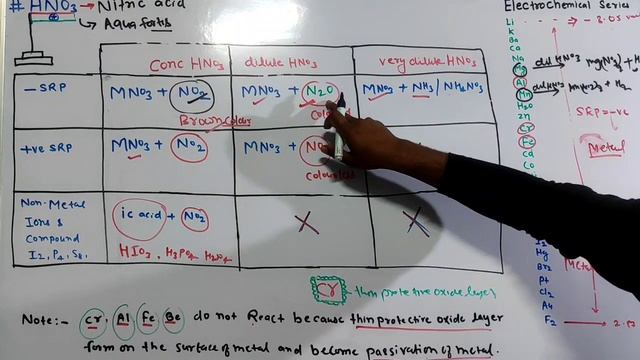 # HNO3 → Nitric acid
↳ Aqua fortis
Conc HNO3
dilute HNO3
very dilute HNO3
-SRP
MNO3 + NO2
Brown colour
MNO3 + N2O
MNO3 + NH3 / NH4NO3
+ve SRP
MNO3 + NO2
MNO3 +
colourless
Non-Metal
Ions &
Compound
I2, P4, S8,
ic acid + NO2
HIO3, H3PO4, H2SO4
X
X
Cr → thin protective oxide layer
Note:- Cr, Al, Fe, Be do not React because thin protective oxide layer
form on the surface of metal and become passivation of metal.
Electrochemical Series
Li
K
Ba
Ca
Na
Mg
Al
Mn
H2O
Zn
Cr
Fe
Cd
Co
dil HNO3
SRP = -ve
Metal
I2
Hg
Br2
Pt
Cl2
Au
F2